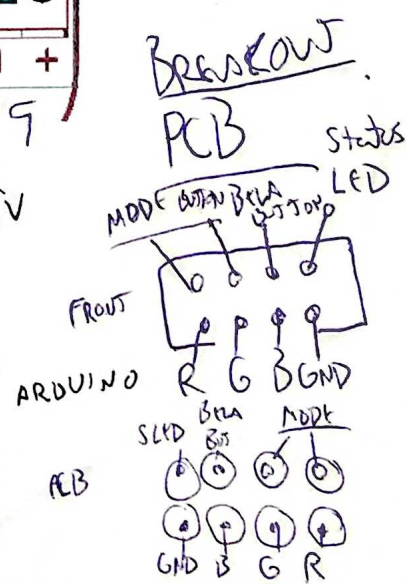 +
9
V
BREAKOUT
PCB
Status
LED
MODE BUTTON BELA
BUTTON
FRONT
ARDUINO R G B GND
SLED BELA MODE
BUT
PCB
GND B G R